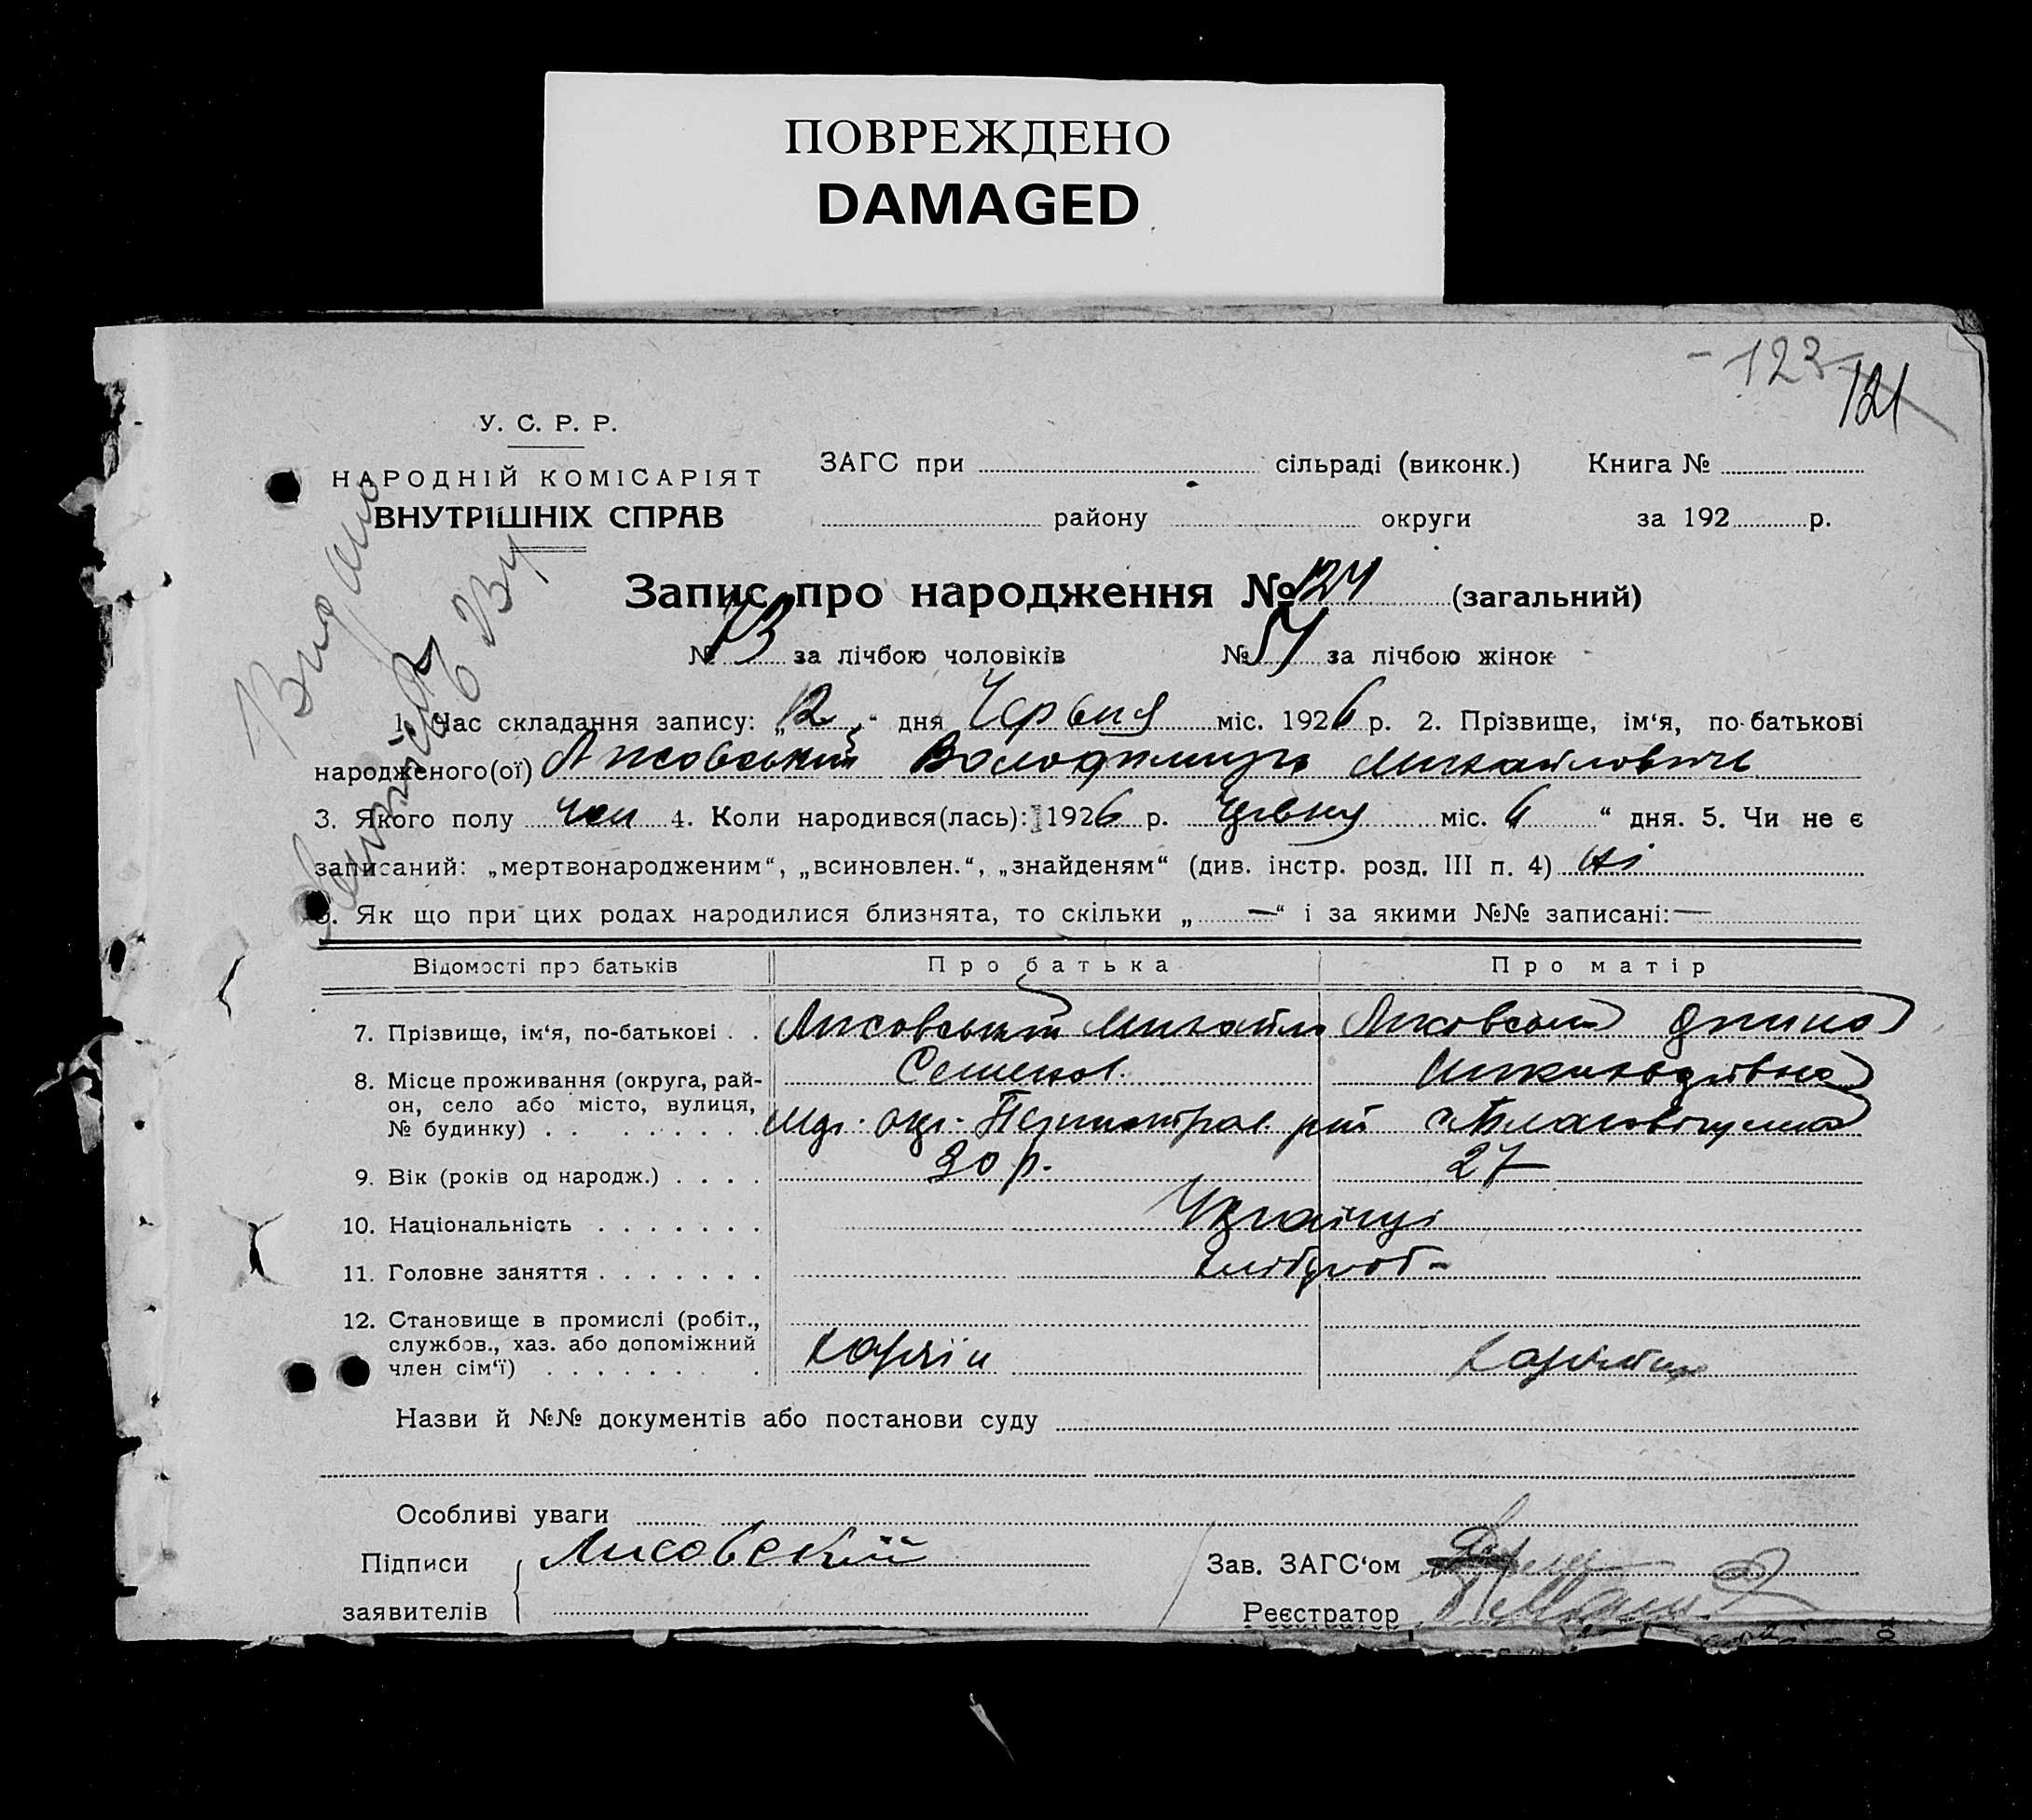 ПОВРЕЖДЕНО
DAMAGED
- 123
121
У. С. Р. Р.
НАРОДНІЙ КОМІСАРІЯТ
ВНУТРІШНІХ СПРАВ
ЗАГС при сільраді (виконк.) Книга №
району округи за 192 р.
Видано
Запис про народження № 124 (загальний)
№ 73 за лічбою чоловіків № 51 за лічбою жінок
1. Час складання запису: „12“ дня Червня міс. 1926 р. 2. Прізвище, ім‘я, по-батькові
народженого(ої) Лисовський Володимир Михайлович
3. Якого полу чол 4. Коли народився(лась): 1926 р. Червня міс. „6“ дня. 5. Чи не є
записаний: „мертвонародженим“, „всиновлен.“, „знайденям“ (див. інстр. розд. III п. 4) ні
6. Як що при цих родах народилися близнята, то скільки „—“ і за якими №№ записані: —
Відомості про батьків Про батька Про матір
7. Прізвище, ім‘я, по-батькові . . Лисовський Михайло Лисовська
Семенов.
8. Місце проживання (округа, рай-
он, село або місто, вулиця,
№ будинку) . . . . . . . . окр. рай
9. Вік (років од народж.) . . . . 30 р. 27
10. Національність . . . . . . . Українці
11. Головне заняття . . . . . . . хлібороб-
12. Становище в промислі (робіт.,
службов., хаз. або допоміжний
член сім‘ї) . . . . . . . .
Назви й №№ документів або постанови суду
Особливі уваги
Підписи Лисовский
заявителів
Зав. ЗАГС‘ом
Реєстратор